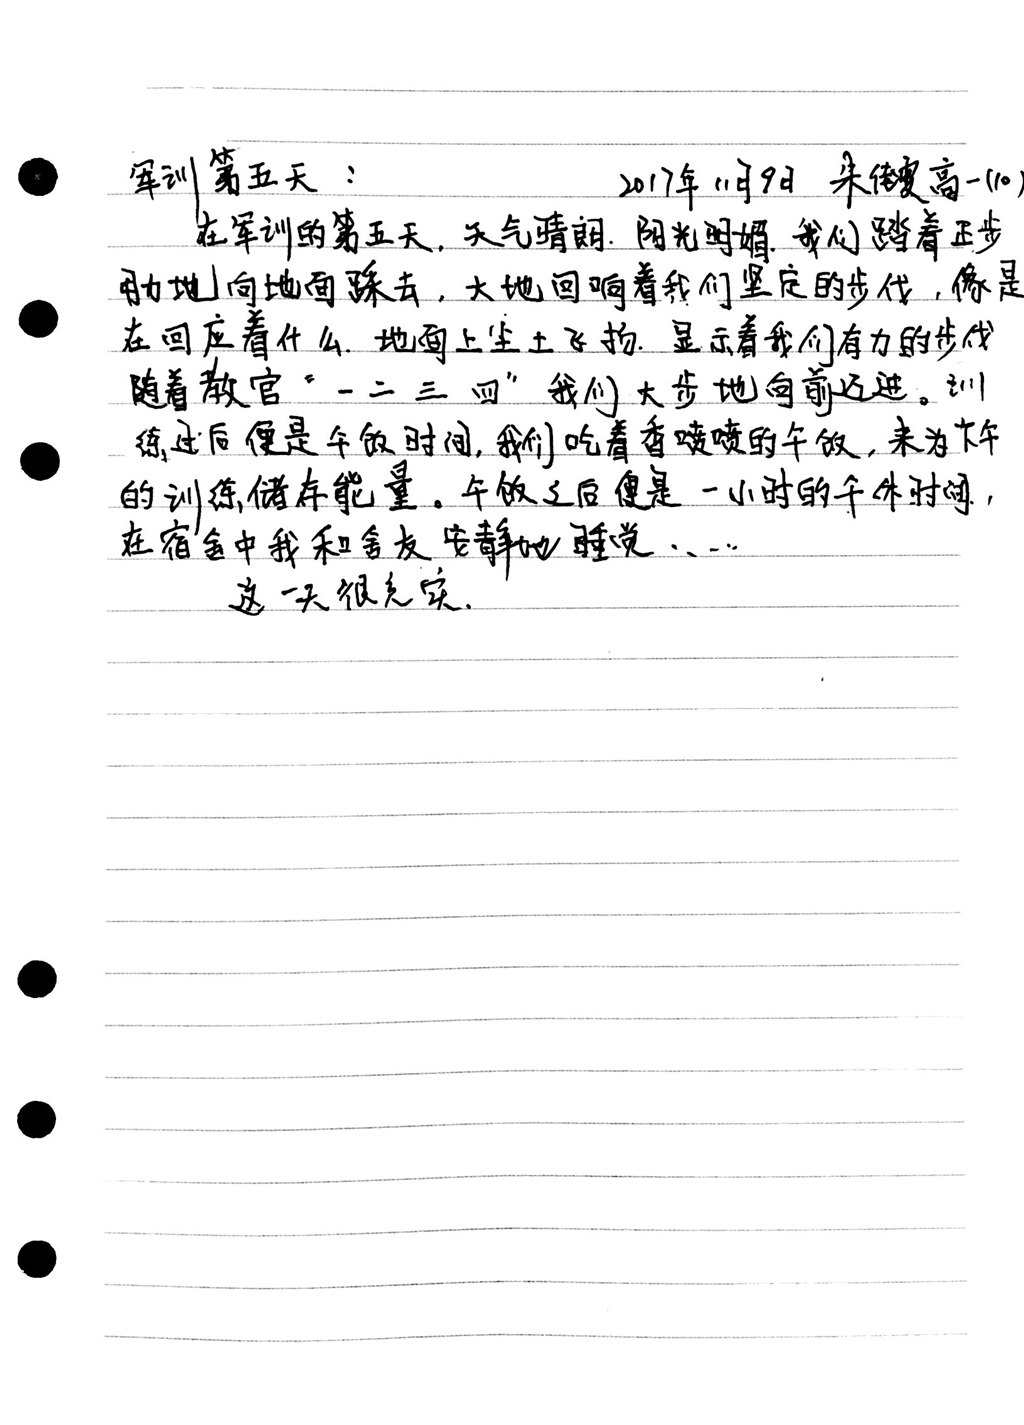 军训第五天： 2017年11月9日 朱佳雯高一(10)
在军训的第五天，天气晴朗．阳光明媚．我们踏着正步
助地向地面踩去，大地回响着我们坚定的步伐，像是
在回应着什么．地面上尘土飞扬．显示着我们有力的步伐
随着教官“一二三四”我们大步地向前迈进。训
练过后便是午饭时间，我们吃着香喷喷的午饭，来为下午
的训练储存能量。午饭之后便是一小时的午休时间，
在宿舍中我和舍友安静地睡觉．….
这一天很充实．